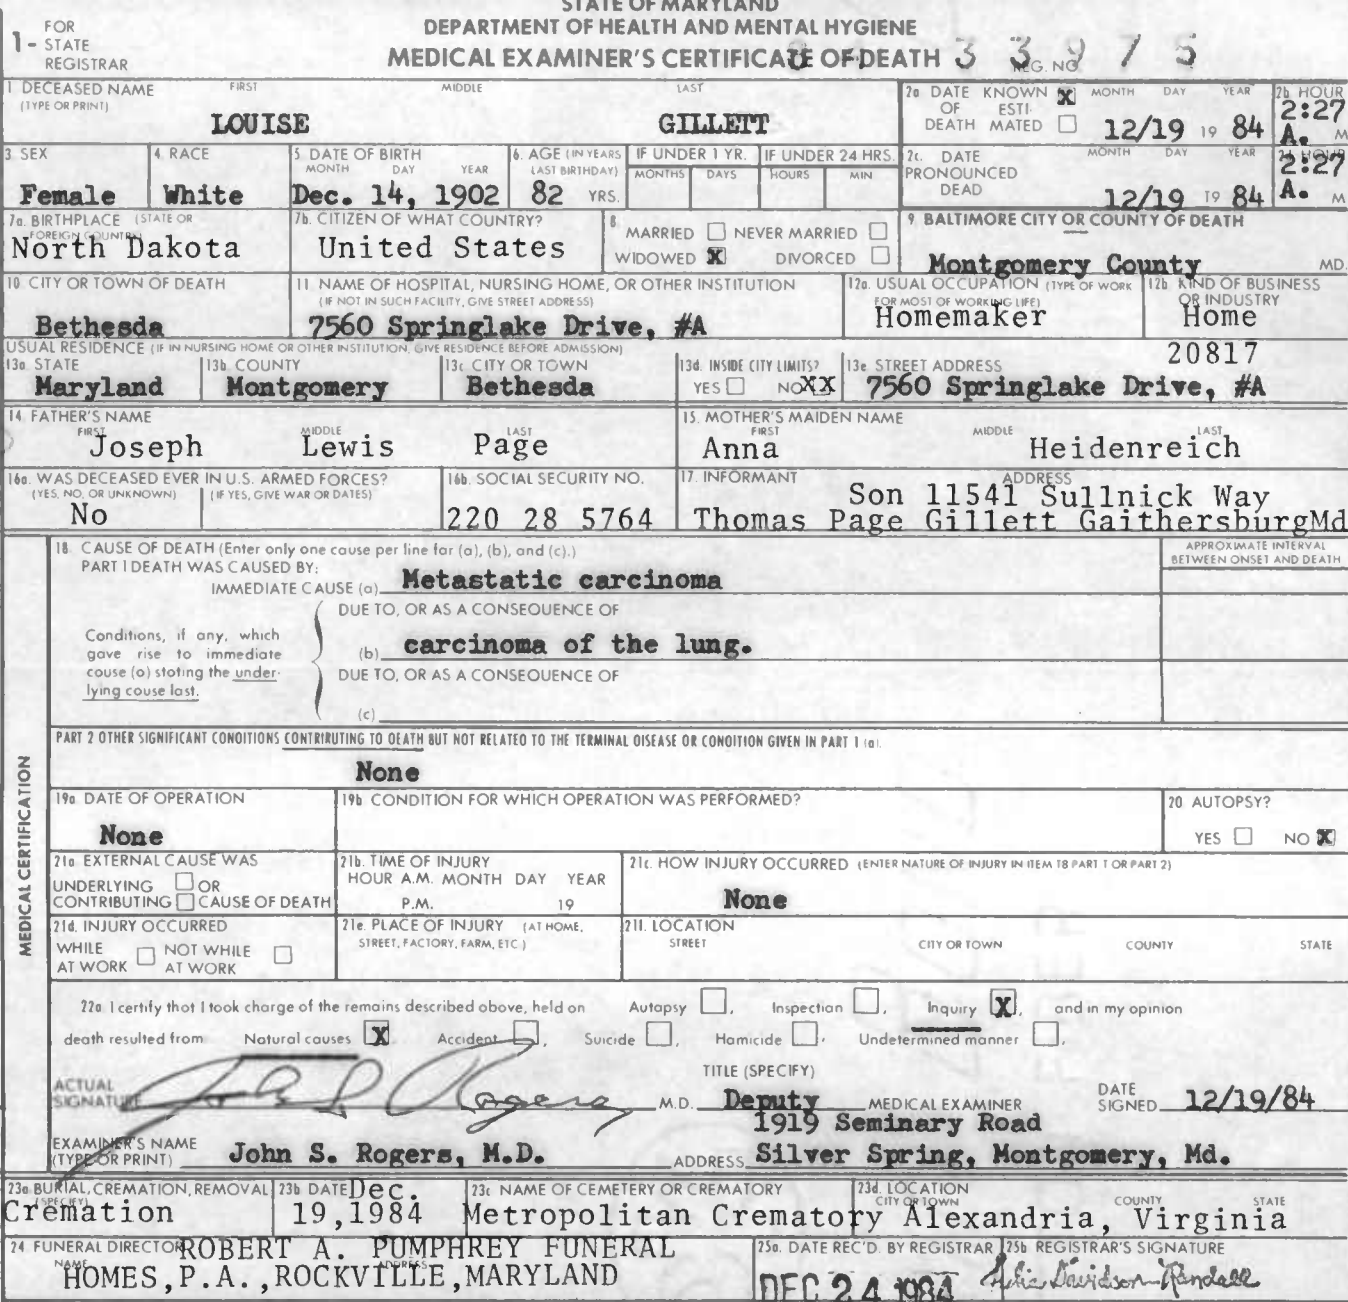 STATE OF MARYLAND
DEPARTMENT OF HEALTH AND MENTAL HYGIENE
MEDICAL EXAMINER'S CERTIFICATE OF DEATH
1- FOR STATE REGISTRAR
REG. NO. 33975
1 DECEASED NAME (TYPE OR PRINT) FIRST MIDDLE LAST
LOUISE GILLETT
2a DATE OF DEATH KNOWN X ESTIMATED MONTH DAY YEAR 12/19 19 84
2b HOUR 2:27 A. M
3. SEX Female
4. RACE White
5. DATE OF BIRTH MONTH DAY YEAR Dec. 14, 1902
6. AGE (IN YEARS LAST BIRTHDAY) 82 YRS.
IF UNDER 1 YR. MONTHS DAYS
IF UNDER 24 HRS. HOURS MIN
2c. DATE PRONOUNCED DEAD MONTH DAY YEAR 12/19 19 84
HOUR 2:27 A. M
7a. BIRTHPLACE (STATE OR FOREIGN COUNTRY) North Dakota
7b. CITIZEN OF WHAT COUNTRY? United States
8. MARRIED NEVER MARRIED
WIDOWED X DIVORCED
9. BALTIMORE CITY OR COUNTY OF DEATH
Montgomery County MD.
10. CITY OR TOWN OF DEATH
Bethesda
11. NAME OF HOSPITAL, NURSING HOME, OR OTHER INSTITUTION
(IF NOT IN SUCH FACILITY, GIVE STREET ADDRESS)
7560 Springlake Drive, #A
12a. USUAL OCCUPATION (TYPE OF WORK FOR MOST OF WORKING LIFE)
Homemaker
12b. KIND OF BUSINESS OR INDUSTRY
Home
USUAL RESIDENCE (IF IN NURSING HOME OR OTHER INSTITUTION, GIVE RESIDENCE BEFORE ADMISSION)
13a. STATE Maryland
13b. COUNTY Montgomery
13c. CITY OR TOWN Bethesda
13d. INSIDE CITY LIMITS? YES NO XX
13e. STREET ADDRESS 20817
7560 Springlake Drive, #A
14. FATHER'S NAME FIRST MIDDLE LAST
Joseph Lewis Page
15. MOTHER'S MAIDEN NAME FIRST MIDDLE LAST
Anna Heidenreich
16a. WAS DECEASED EVER IN U.S. ARMED FORCES?
(YES, NO, OR UNKNOWN) (IF YES, GIVE WAR OR DATES)
No
16b. SOCIAL SECURITY NO.
220 28 5764
17. INFORMANT ADDRESS
Son 11541 Sullnick Way
Thomas Page Gillett GaithersburgMd
MEDICAL CERTIFICATION
18. CAUSE OF DEATH (Enter only one cause per line for (a), (b), and (c).)
PART I DEATH WAS CAUSED BY:
APPROXIMATE INTERVAL BETWEEN ONSET AND DEATH
IMMEDIATE CAUSE (a) Metastatic carcinoma
DUE TO, OR AS A CONSEQUENCE OF
Conditions, if any, which gave rise to immediate cause (a) stating the underlying cause last.
(b) carcinoma of the lung.
DUE TO, OR AS A CONSEQUENCE OF
(c)
PART 2 OTHER SIGNIFICANT CONDITIONS CONTRIBUTING TO DEATH BUT NOT RELATED TO THE TERMINAL DISEASE OR CONDITION GIVEN IN PART 1 (a).
None
19a. DATE OF OPERATION
None
19b. CONDITION FOR WHICH OPERATION WAS PERFORMED?
20. AUTOPSY?
YES NO X
21a. EXTERNAL CAUSE WAS
UNDERLYING OR
CONTRIBUTING CAUSE OF DEATH
21b. TIME OF INJURY
HOUR A.M. MONTH DAY YEAR
P.M. 19
21c. HOW INJURY OCCURRED (ENTER NATURE OF INJURY IN ITEM 18 PART 1 OR PART 2)
None
21d. INJURY OCCURRED
WHILE AT WORK NOT WHILE AT WORK
21e. PLACE OF INJURY (AT HOME, STREET, FACTORY, FARM, ETC.)
21f. LOCATION
STREET CITY OR TOWN COUNTY STATE
22a. I certify that I took charge of the remains described above, held on Autopsy , Inspection , Inquiry X , and in my opinion
death resulted from Natural causes X Accident , Suicide , Homicide , Undetermined manner .
ACTUAL SIGNATURE John S Rogers M.D.
TITLE (SPECIFY) Deputy MEDICAL EXAMINER
DATE SIGNED 12/19/84
EXAMINER'S NAME (TYPE OR PRINT) John S. Rogers, M.D.
ADDRESS 1919 Seminary Road
Silver Spring, Montgomery, Md.
23a. BURIAL, CREMATION, REMOVAL (SPECIFY)
Cremation
23b. DATE Dec. 19,1984
23c. NAME OF CEMETERY OR CREMATORY
Metropolitan Crematory
23d. LOCATION CITY OR TOWN COUNTY STATE
Alexandria, Virginia
24. FUNERAL DIRECTOR NAME ADDRESS
ROBERT A. PUMPHREY FUNERAL
HOMES,P.A.,ROCKVILLE,MARYLAND
25a. DATE REC'D. BY REGISTRAR
DEC 24 1984
25b. REGISTRAR'S SIGNATURE
Davidson-Randall